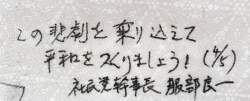 この悲劇を乗り込えて
平和をつくりましょう! (4/5)
社民党幹事長 服部良一